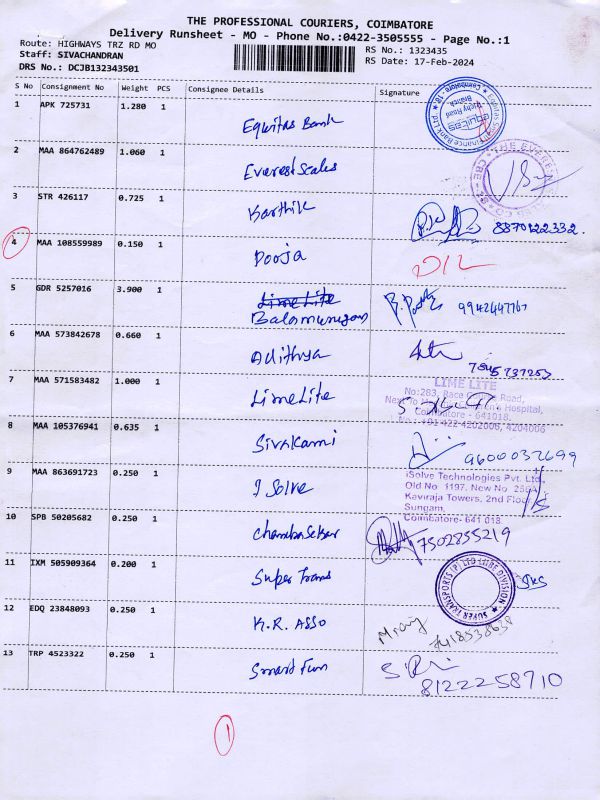 THE PROFESSIONAL COURIERS, COIMBATORE
Delivery Runsheet - MO - Phone No.:0422-3505555 - Page No.:1
Route: HIGHWAYS TRZ RD MO
RS No.: 1323435
Staff: SIVACHANDRAN
RS Date: 17-Feb-2024
DRS No.: DCJB132343501
S No Consignment No Weight PCS Consignee Details Signature
1 APK 725731 1.280 1 Equitas Bank
2 MAA 864762489 1.060 1 Everest Scales
3 STR 426117 0.725 1 Karthik 8870122332.
4 MAA 108559989 0.150 1 Pooja D/L
5 GDR 5257016 3.900 1 Lime Lite
Balamurugan 9942447767
6 MAA 573842678 0.660 1 Adithya
7 MAA 571583482 1.000 1 Lime Lite
LIME LITE
No:283, Race Course Road,
Coimbatore - 641018.
+91 422 4202006, 4204006
8 MAA 105376941 0.635 1 Sivakami 9600032699
9 MAA 863691723 0.250 1 I Solve
iSolve Technologies Pvt. Ltd.,
Old No 1197, New No
Kaviraja Towers, 2nd Floor
Sungam,
Coimbatore- 641 018.
10 SPB 50205682 0.250 1 7502855219
11 IXM 505909364 0.200 1 Super Trans
SUPER TRANSPORTS (P) LTD LUBE DIVISION
12 EDQ 23848093 0.250 1 K.R. ASSO 7418538638
13 TRP 4523322 0.250 1 Smart Fun
8122258710
1